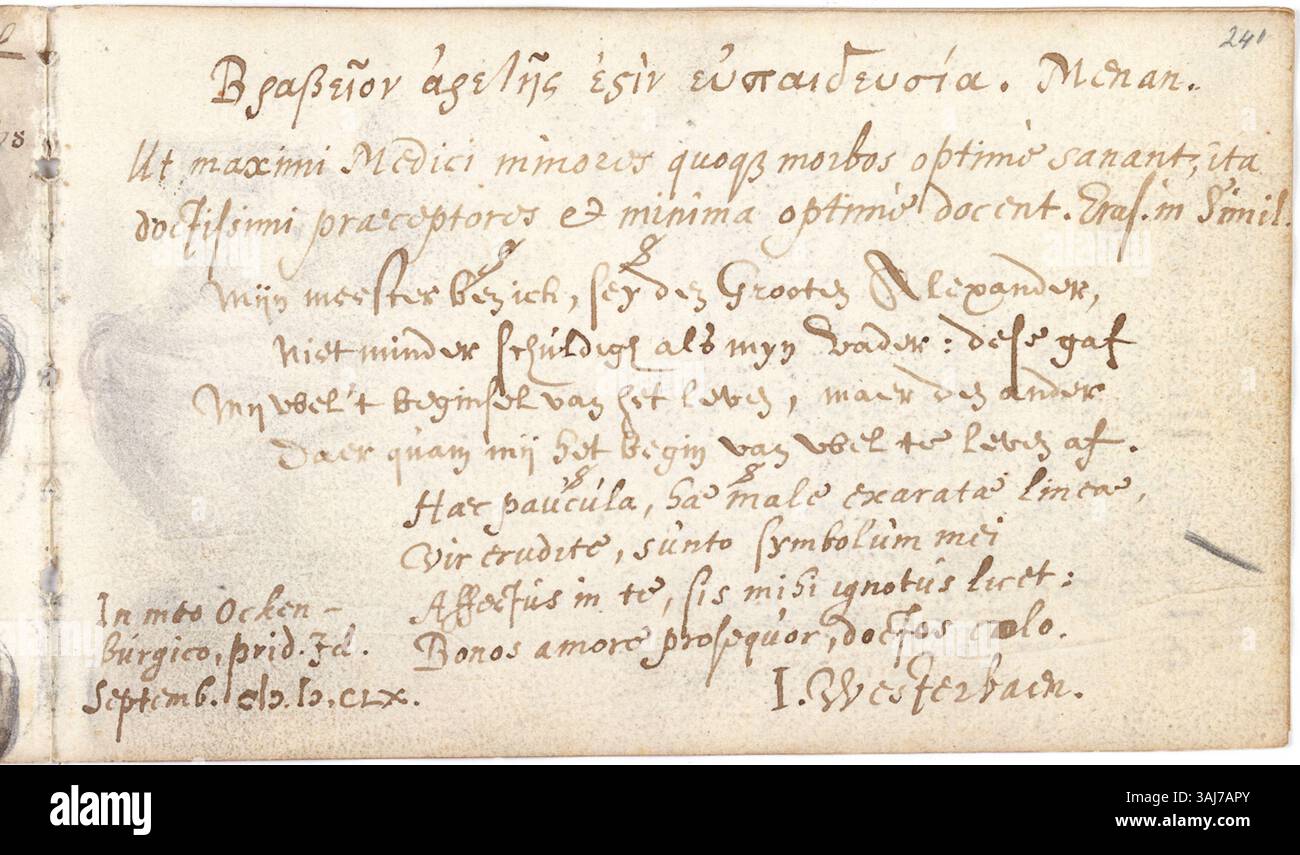 241
Βραβεῖον ἀρετῆς ἐϛὶν εὐπαιδευσία. Menan.
Ut maximi Medici minores quoqꝫ morbos optimè sanant, ita
doctissimi præceptores & minima optimè docent. Eras. in Simil.
Mijn meester ben ick, sey den Grooten Alexander,
Niet minder schuldigh als myn Vader: dese gaf
Mij wel 't beginsel van het leven, maer den ander
Daer quam mij het begin van wel te leven af.
Hæc paucula, hæ male exaratæ lineæ,
Vir erudite, sunto symbolum mei
Affectus in te, sis mihi ignotus licet:
Bonos amore prosequor, doctos colo.
In meo Ocken-
burgico, prid. Id.
Septemb. cIɔ.Iɔ.cLX.
I. Westerbaen.
alamy
Image ID: 3AJ7APY
www.alamy.com